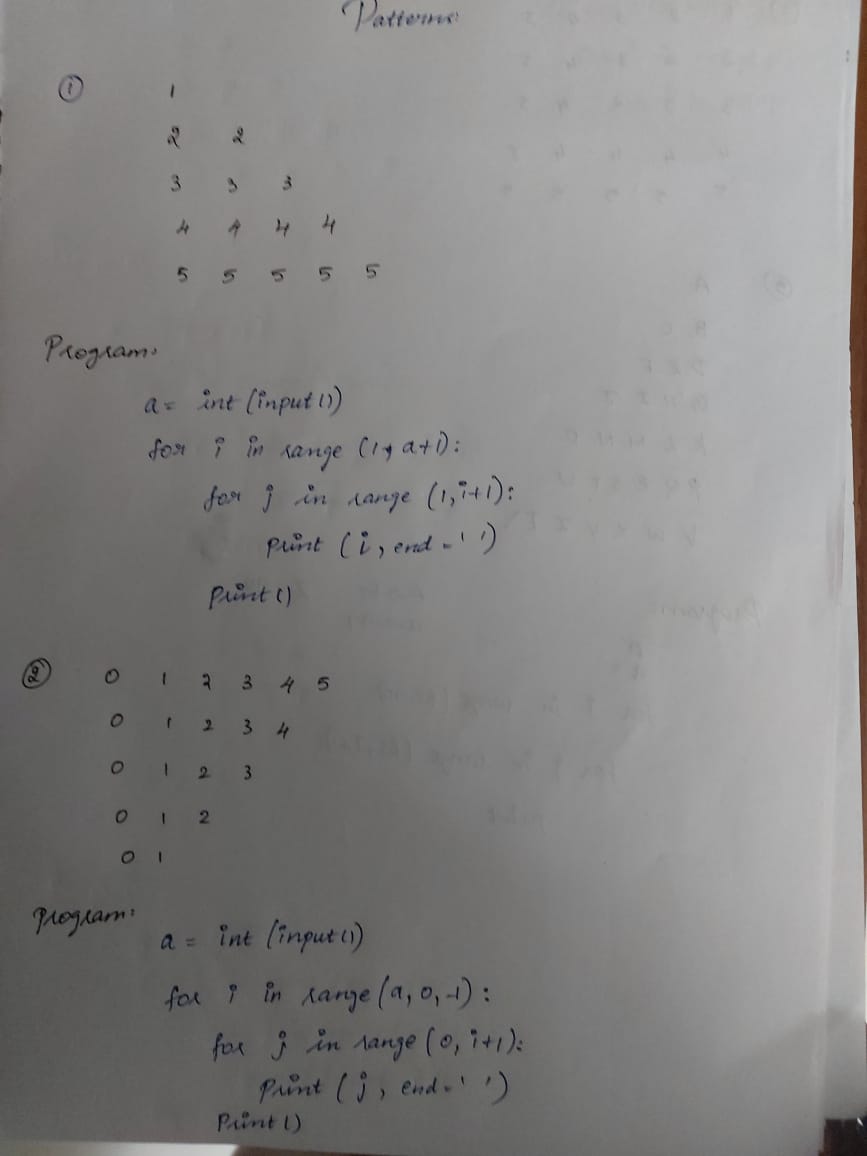 Patterns:
① 1
2 2
3 3 3
4 4 4 4
5 5 5 5 5
Program:
a = int (input())
for i in range (1, a+1):
for j in range (1, i+1):
print (i, end = ' ')
print()
② 0 1 2 3 4 5
0 1 2 3 4
0 1 2 3
0 1 2
0 1
Program:
a = int (input())
for i in range (a, 0, -1):
for j in range (0, i+1):
print (j, end = ' ')
print()